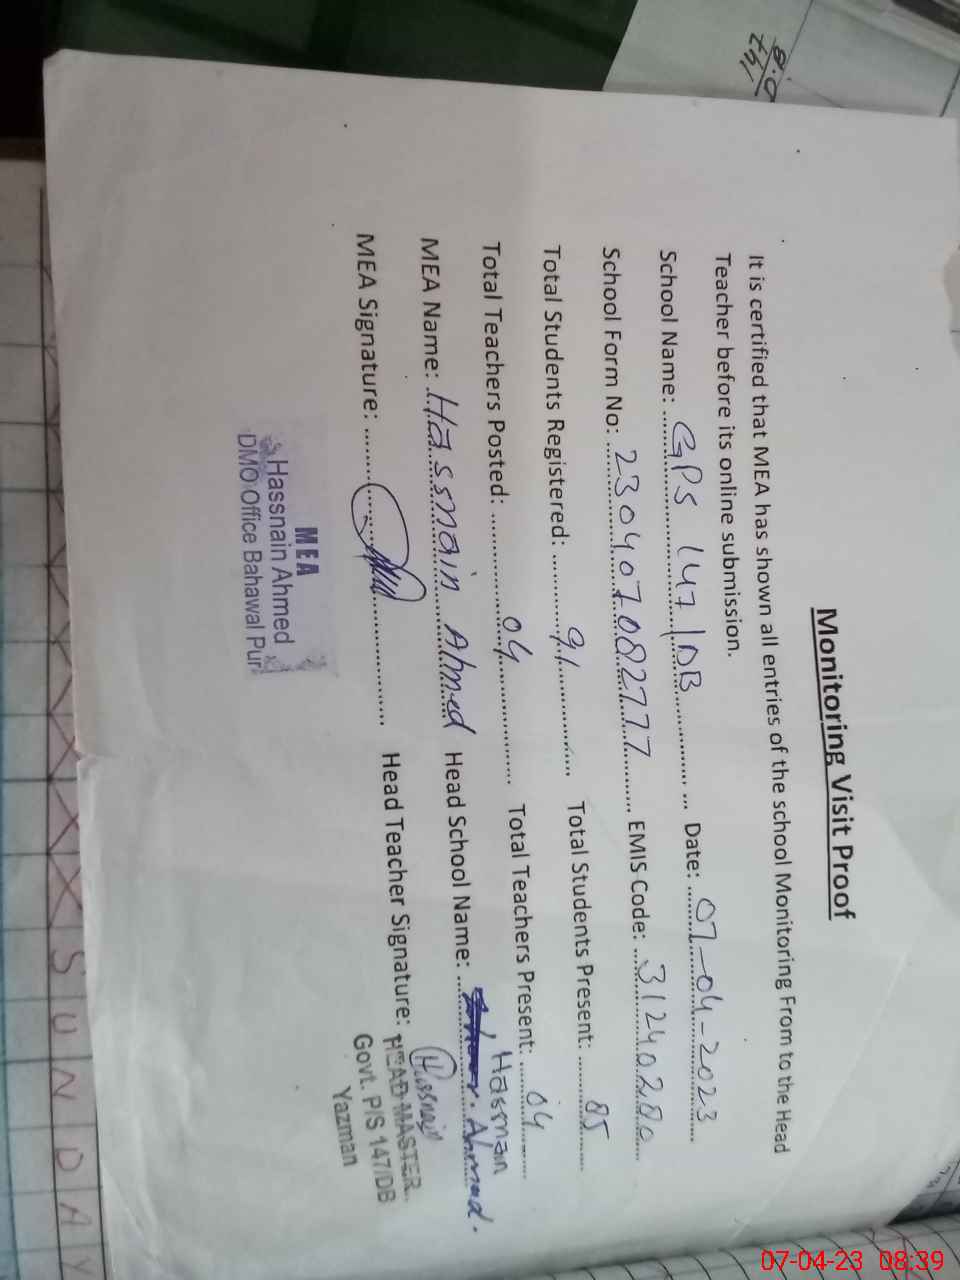 Monitoring Visit Proof
It is certified that MEA has shown all entries of the school Monitoring From to the Head
Teacher before its online submission.
School Name: ...GPS 147/DB... Date: ...07-04-2023...
School Form No: ...230407082777... EMIS Code: ...31240280...
Total Students Registered: ...91... Total Students Present: ...85...
Total Teachers Posted: ...04... Total Teachers Present: ...04...
MEA Name: ...Hassnain Ahmed Head School Name: ...Hasnain Ahmad.
MEA Signature: ... Head Teacher Signature: Hassnain
HEAD MASTER
Govt. P/S 147/DB
Yazman
MEA
Hassnain Ahmed
DMO Office Bahawal Pur
SUNDAY
07-04-23 08:39